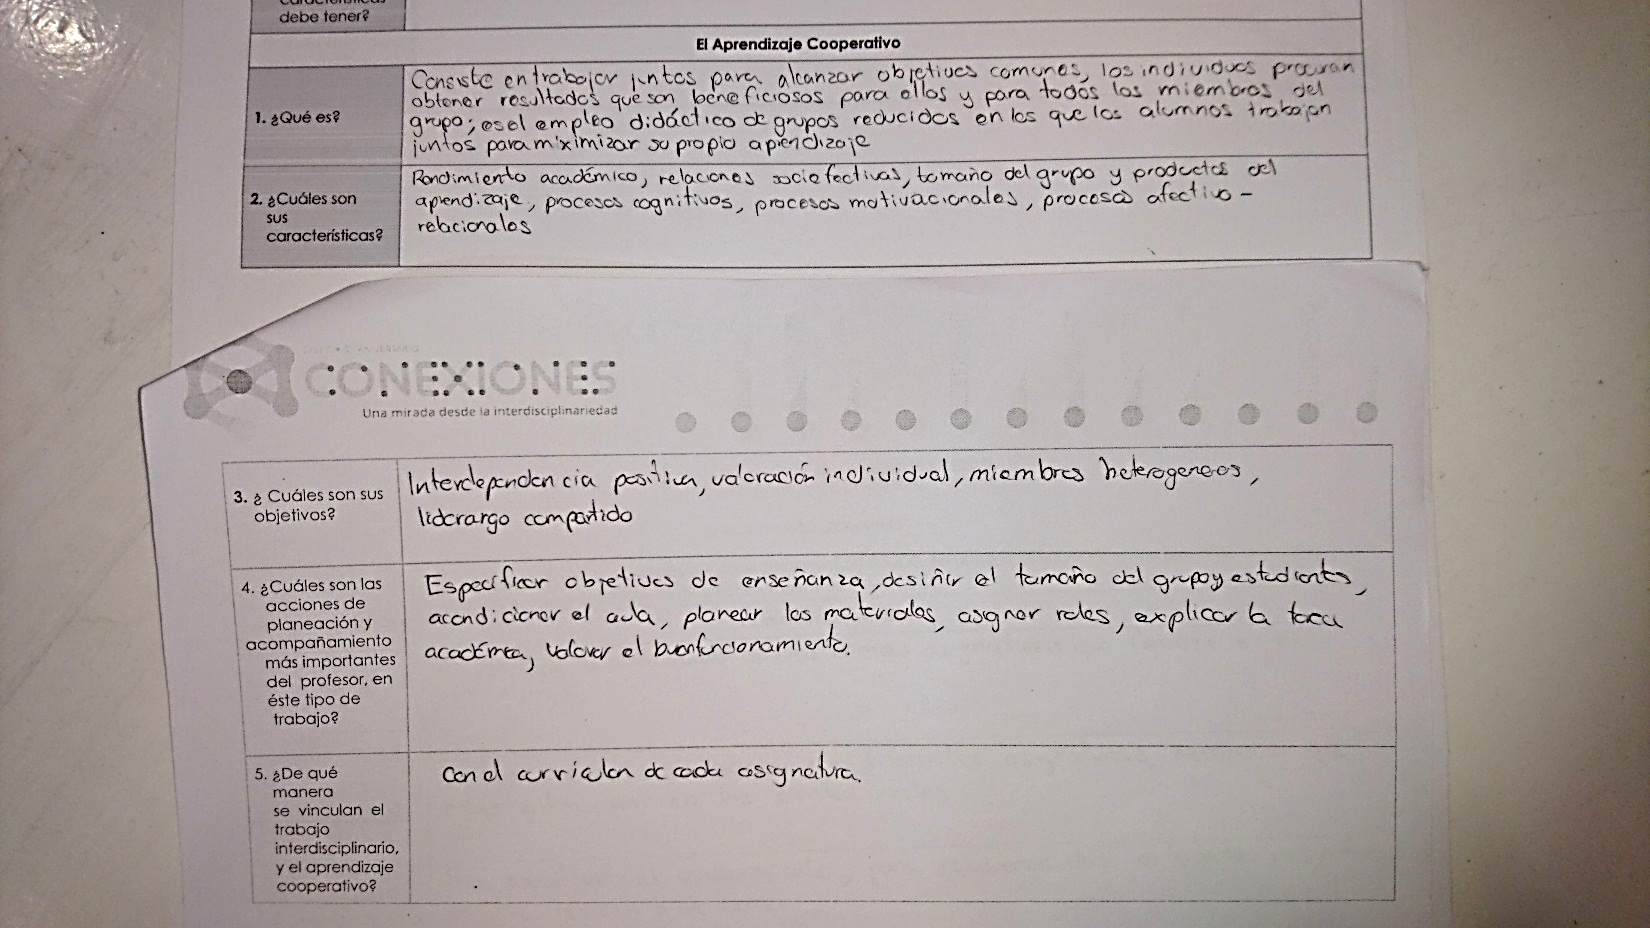 debe tener?
El Aprendizaje Cooperativo
1. ¿Qué es?
Consiste en trabajar juntos para alcanzar objetivos comunes, los individuos procuran
obtener resultados que son beneficiosos para ellos y para todos los miembros del
grupo; es el empleo didáctico de grupos reducidos en los que los alumnos trabajan
juntos para maximizar su propio aprendizaje
2. ¿Cuáles son
sus
características?
Rendimiento académico, relaciones socioafectivas, tamaño del grupo y productos del
aprendizaje, procesos cognitivos, procesos motivacionales, procesos afectivo -
relacionales
CONEXIONES
Una mirada desde la interdisciplinariedad
3. ¿ Cuáles son sus
objetivos?
Interdependencia positiva, valoración individual, miembros heterogeneos,
liderazgo compartido
4. ¿Cuáles son las
acciones de
planeación y
acompañamiento
más importantes
del profesor, en
éste tipo de
trabajo?
Especificar objetivos de enseñanza, el tamaño del grupo y estudiantes,
acondicionar el aula, planear los materiales, asignar roles, explicar la tarea
académica, valorar el buen funcionamiento.
5. ¿De qué
manera
se vinculan el
trabajo
interdisciplinario,
y el aprendizaje
cooperativo?
Con el de cada asignatura.